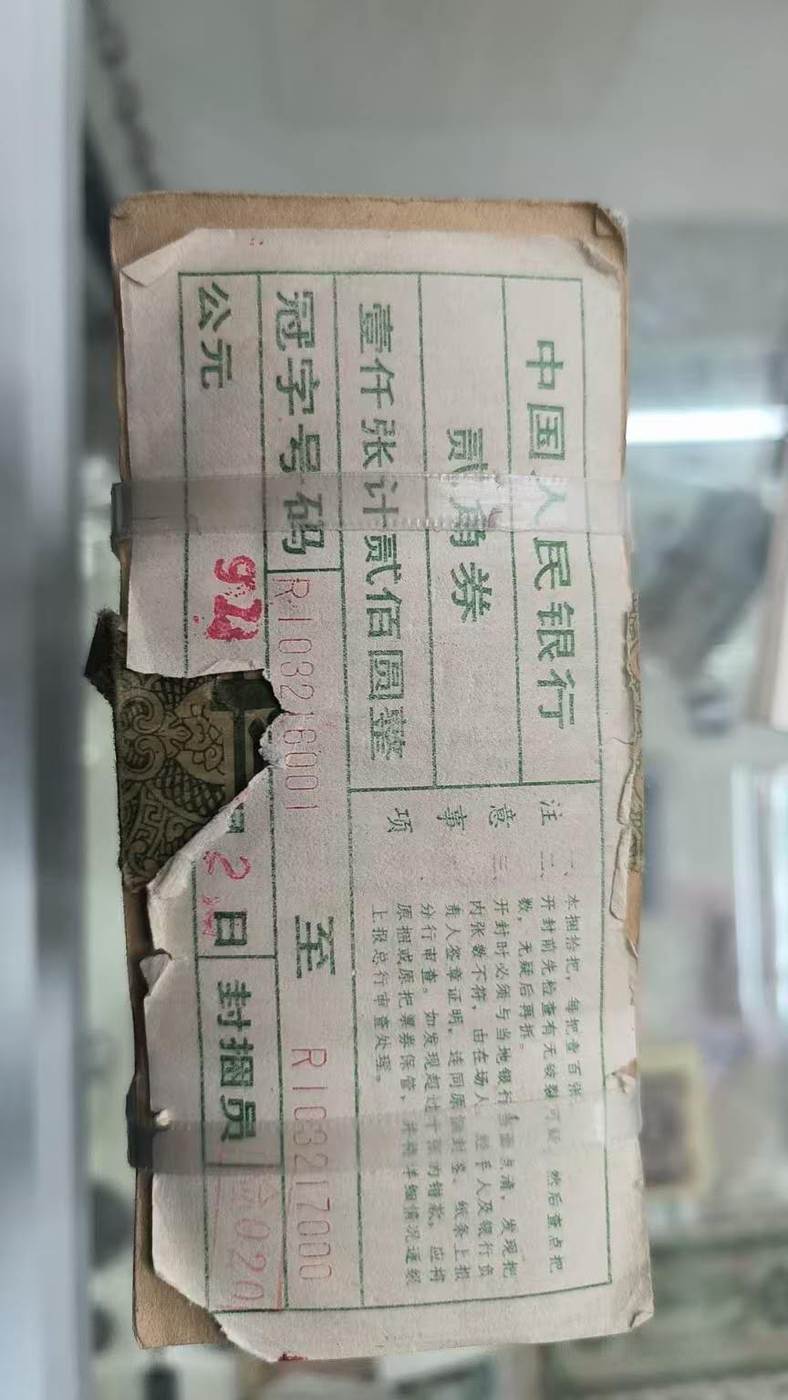 中国人民银行
贰角券
壹仟张计贰佰圆整
冠字号码 R103216001 至 R103217000
公元 2 日 封捆员 020
注意事项
一、本捆拾把，每把壹百张。
二、开封前先检查有无破裂可疑，然后查点把
数，无疑后再拆。
三、开封时必须与当地银行当面点清，发现把
内张数不符，由在场人、经手人及银行负
责人签章证明，连同原捆封签、纸条上报
分行审查。如发现超过十张的错款，应将
原捆或原把票券保管，并将详细情况逐级
上报总行审查处理。